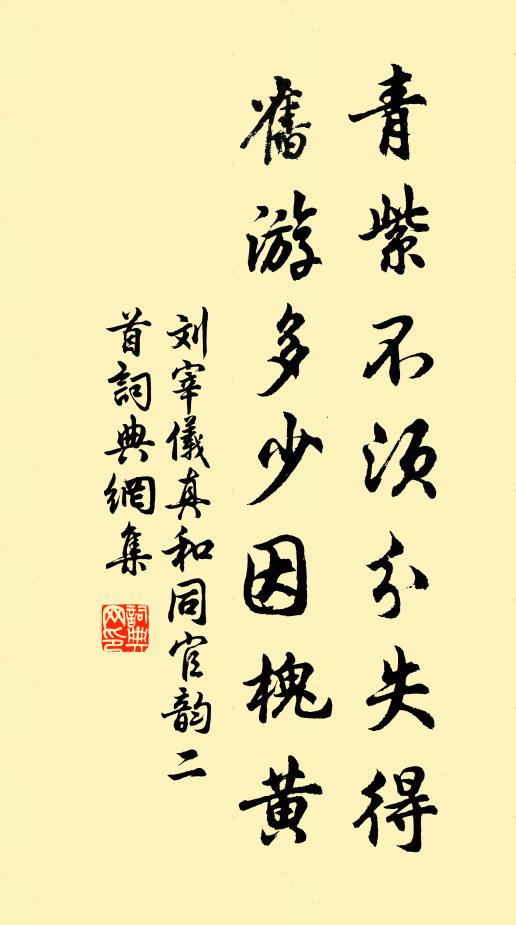 青紫不须分失得
舊游多少因槐黄
刘宰儀真和同官韵二
首詞典網集
詞典网印